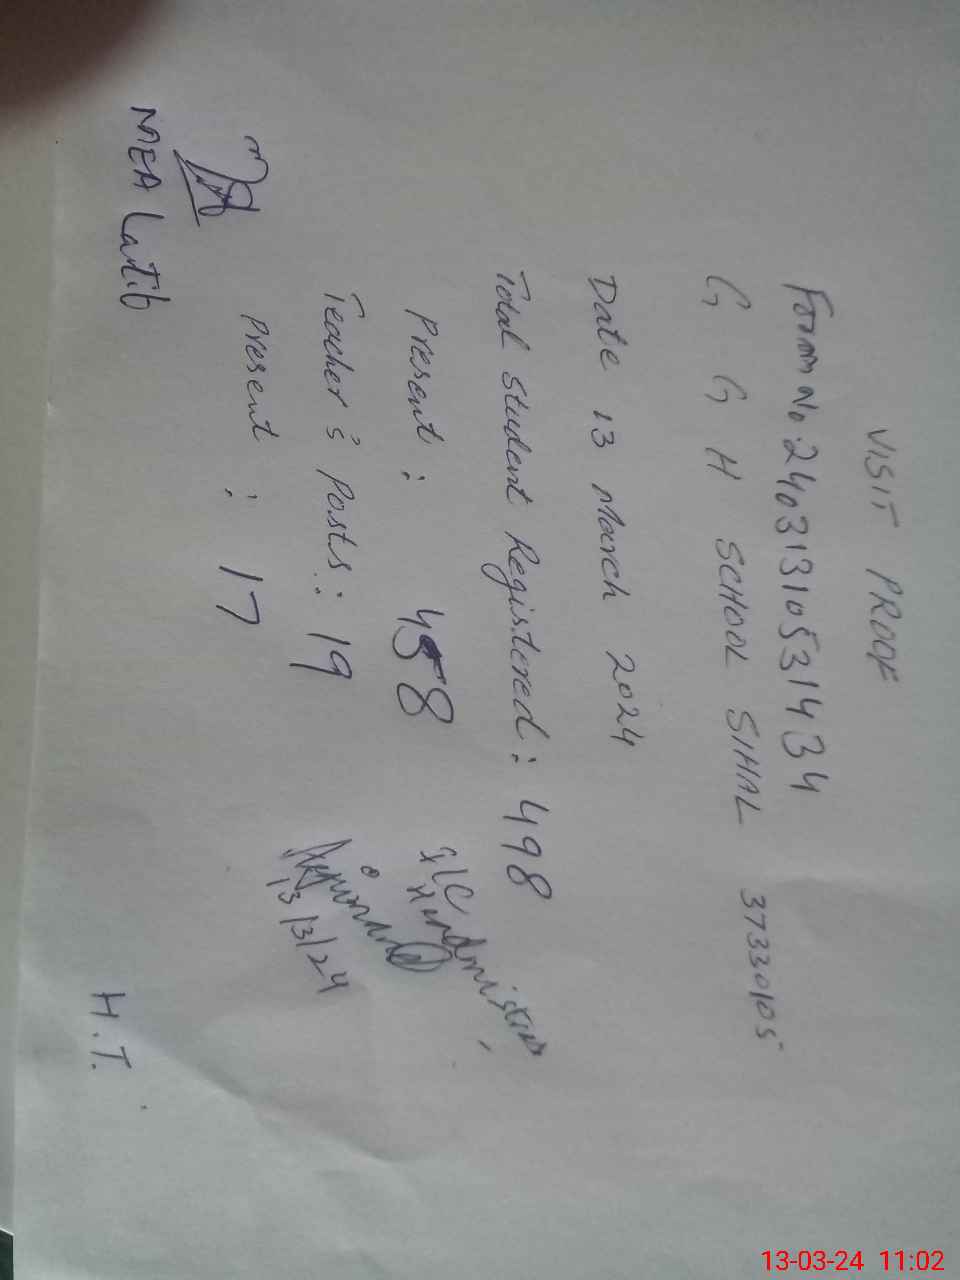 VISIT PROOF
Form No 2403131053 1434
G G H SCHOOL SIHAL 37330105
Date 13 March 2024
Total Student Registered : 498
Present : 458
Teacher's Posts : 19
Present : 17
I/C Headmistress
13/3/24
MEA Latib
H.T.
13-03-24 11:02